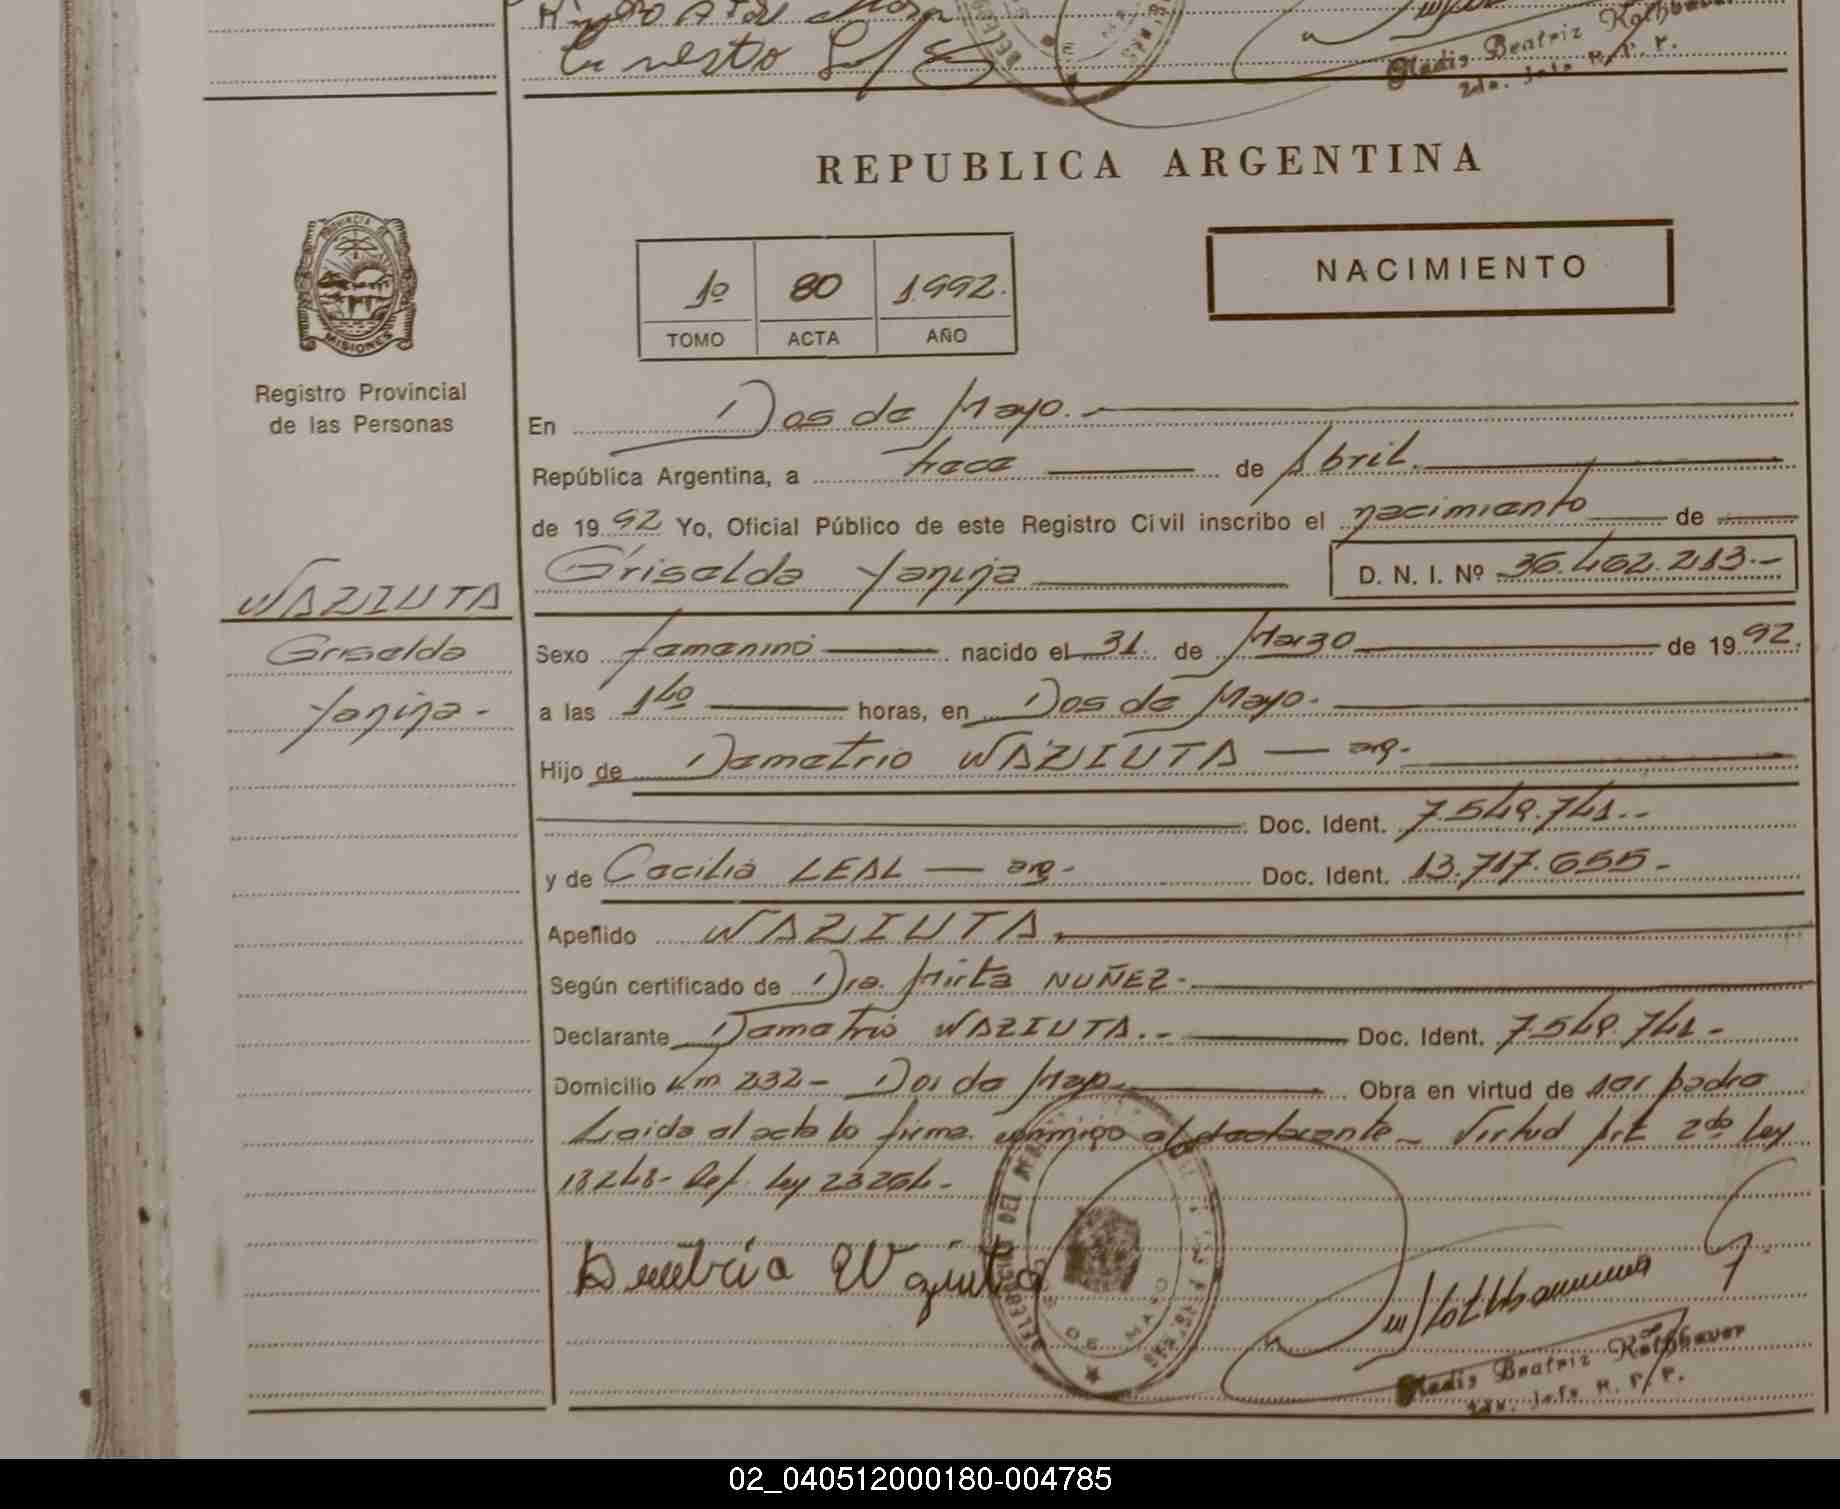 Ernesto
Gladis Beatriz Rothbauer
2da. Jefe R. P. P.
REPUBLICA ARGENTINA
NACIMIENTO
1º 80 1992.
TOMO ACTA AÑO
PROVINCIA DE
MISIONES
Registro Provincial
de las Personas
En Dos de Mayo.
República Argentina, a trece de Abril.
de 1992 Yo, Oficial Público de este Registro Civil inscribo el nacimiento de
WAZIUTA Griselda Yanina D. N. I. Nº 36.462.213.-
Griselda Sexo femenino nacido el 31 de Marzo de 1992.
Yanina- a las 140 horas, en Dos de Mayo.
Hijo de Demetrio WAZIUTA — arg.
Doc. Ident. 7.549.741.-
y de Cecilia LEAL — arg.- Doc. Ident. 13.717.655-
Apellido WAZIUTA.
Según certificado de Dra. Mirta NUÑEZ-
Declarante Demetrio WAZIUTA.- Doc. Ident. 7.549.741-
Domicilio Km 232- Dos de Mayo. Obra en virtud de ser padre
Leida el acta la firma conmigo el declarante- Virtud Art 2do Ley
18248- Ref. Ley 23264-
DOS DE MAYO
Gladis Beatriz Rothbauer
2da. Jefe R. P. P.
02_040512000180-004785